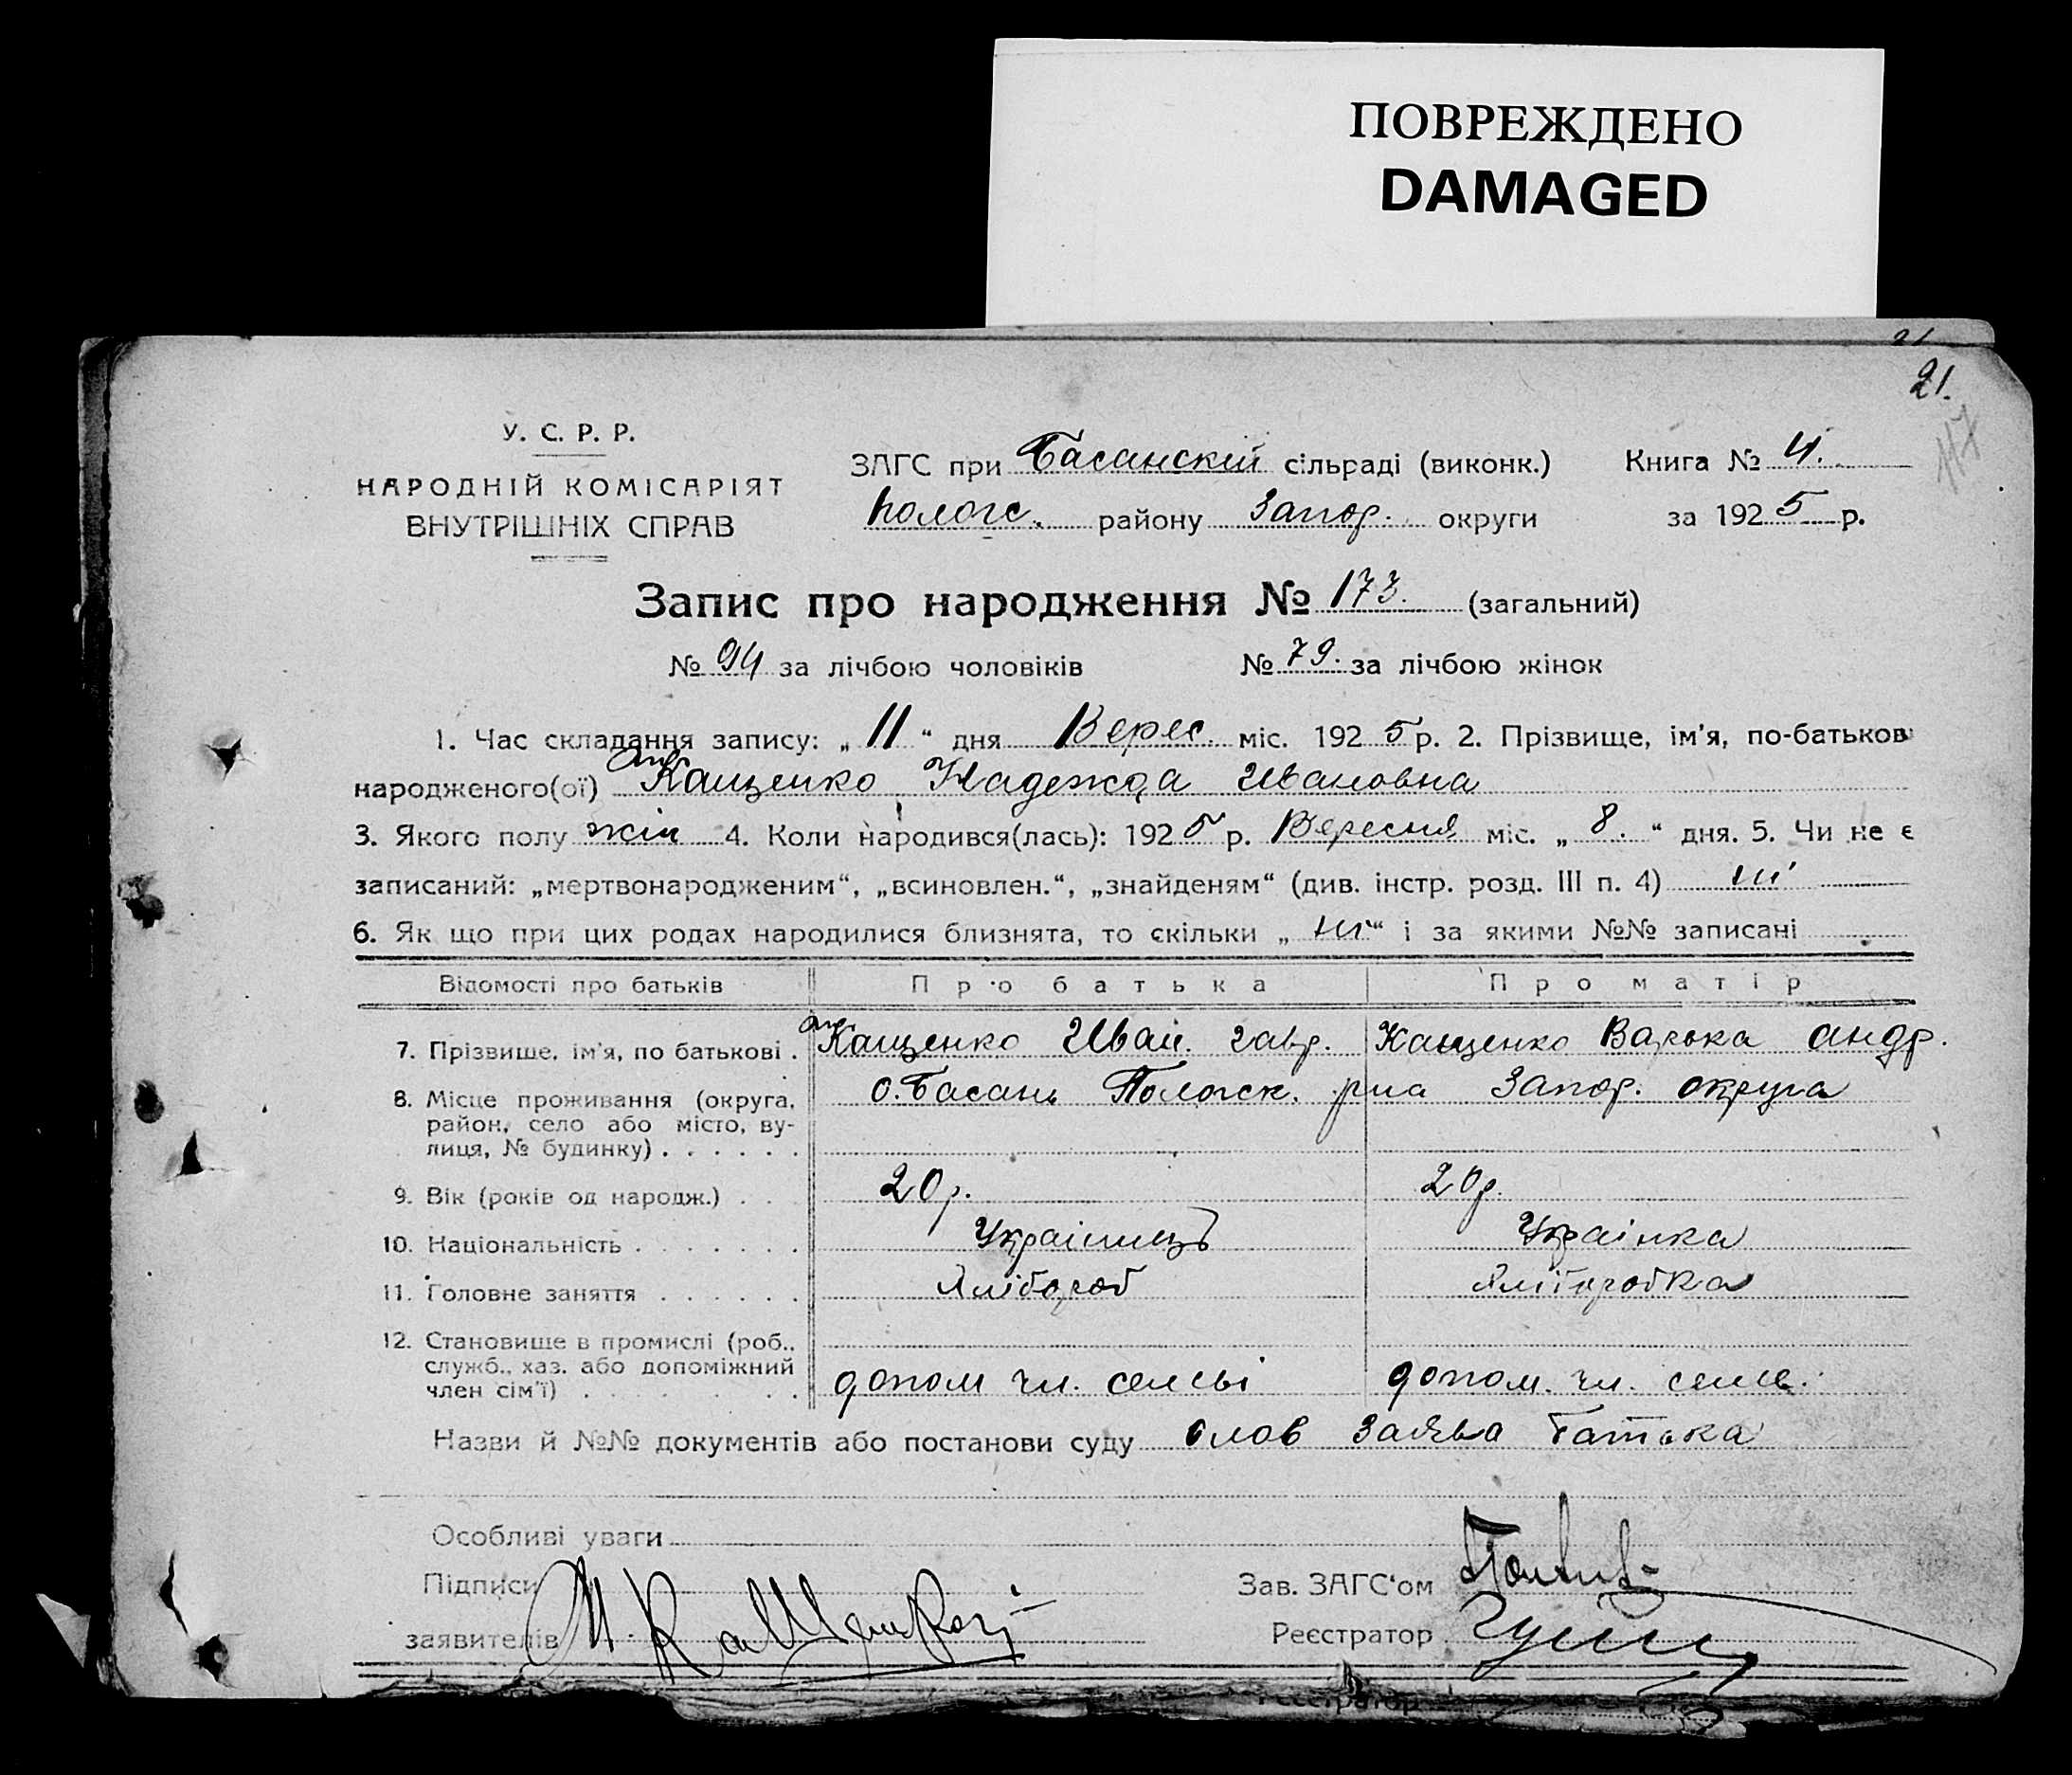 ПОВРЕЖДЕНО
DAMAGED
21
21.
117
У. С. Р. Р.
НАРОДНІЙ КОМІСАРІЯТ
ВНУТРІШНІХ СПРАВ
ЗАГС при Басанскій сільраді (виконк.)
Пологс. району Запор. округи
Книга № 4.
за 1925 р.
Запис про народження № 173. (загальний)
№ 94 за лічбою чоловіків № 79. за лічбою жінок
1. Час складання запису: „ 11 “ дня Верес. міс. 1925 р. 2. Прізвище, ім'я, по-батькові
народженого(ої) Кащенко Надежда Ивановна
3. Якого полу жін 4. Коли народився(лась): 1925 р. Вересня міс. „ 8. “ дня. 5. Чи не є
записаний: „мертвонародженим“, „всиновлен.“, „знайденям“ (див. інстр. розд. III п. 4) ні
6. Як що при цих родах народилися близнята, то скільки „ ні “ і за якими №№ записані
Відомості про батьків Про батька Про матір
7. Прізвище, ім'я, по батькові . Кащенко Иван. Гавр. Кащенко Варька Андр.
8. Місце проживання (округа, район, село або місто, вулиця, № будинку) . . . . . . с. Басань Пологск. р-на Запор. округа
9. Вік (років од народж.) . . 20 р. 20 р.
10. Національність . . . . . . . Українець Українка
11. Головне заняття . . . . . . Хлібороб Хліборобка
12. Становище в промислі (роб., служб., хаз. або допоміжний член сім'ї) . . . . . . допом чл. семьі допом. чл. семь.
Назви й №№ документів або постанови суду Слов заява батька
Особливі уваги
Підписи
заявителів И. Кащенко
Зав. ЗАГС'ом
Реєстратор
Реєстратор